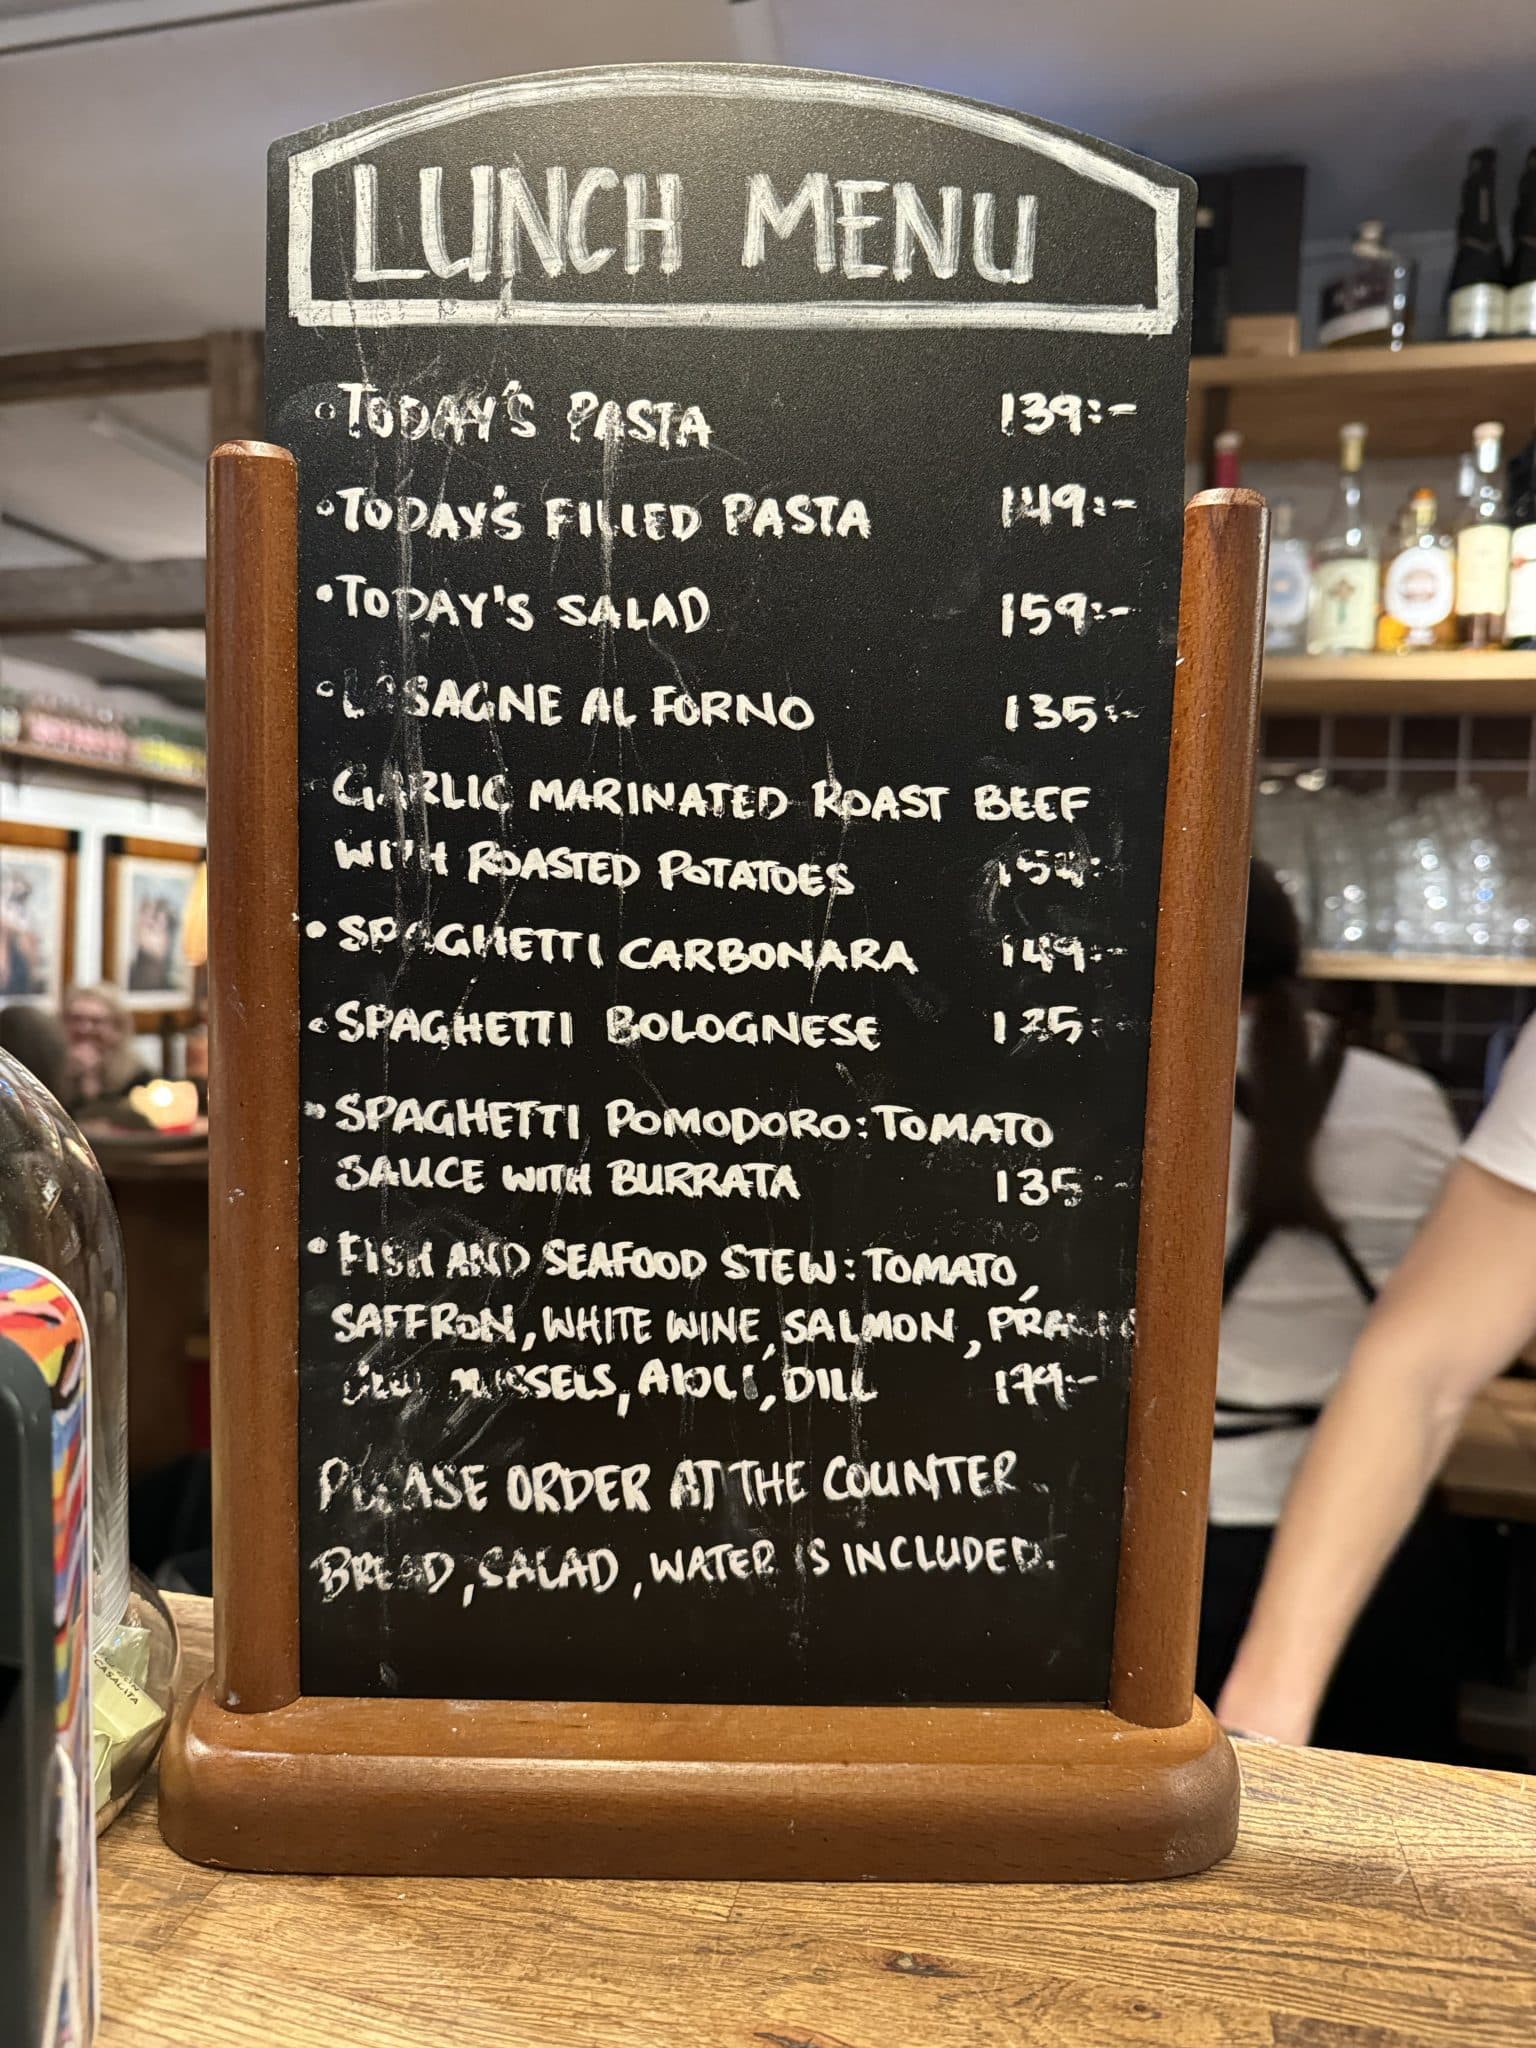 LUNCH MENU
TODAY'S PASTA 139:-
TODAY'S FILLED PASTA 149:-
TODAY'S SALAD 159:-
LASAGNE AL FORNO 135:-
GARLIC MARINATED ROAST BEEF
WITH ROASTED POTATOES
SPAGHETTI CARBONARA 149:-
SPAGHETTI BOLOGNESE 135:-
SPAGHETTI POMODORO: TOMATO
SAUCE WITH BURRATA 135:-
FISH AND SEAFOOD STEW: TOMATO,
SAFFRON, WHITE WINE, SALMON,
MUSSELS, AIOLI, DILL 179:-
PLEASE ORDER AT THE COUNTER
BREAD, SALAD, WATER IS INCLUDED.